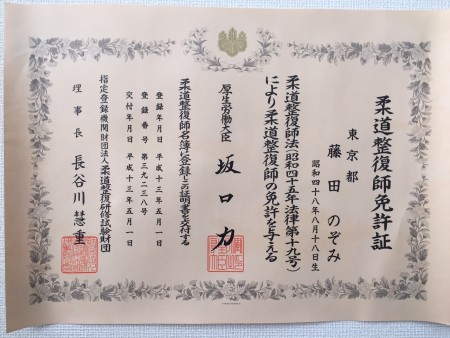 柔道整復師免許証
東京都
藤田のぞみ
昭和四十八年八月十八日生
柔道整復師法(昭和四十五年法律第十九号)
により柔道整復師の免許を与える
厚生労働大臣 坂口力
柔道整復師名簿に登録上の証明書を交付する
登録年月日 平成十三年五月一日
登録番号 第三九二三八号
交付年月日 平成十三年五月一日
指定登録機関財団法人柔道整復研修試験財団
理事長 長谷川慧重